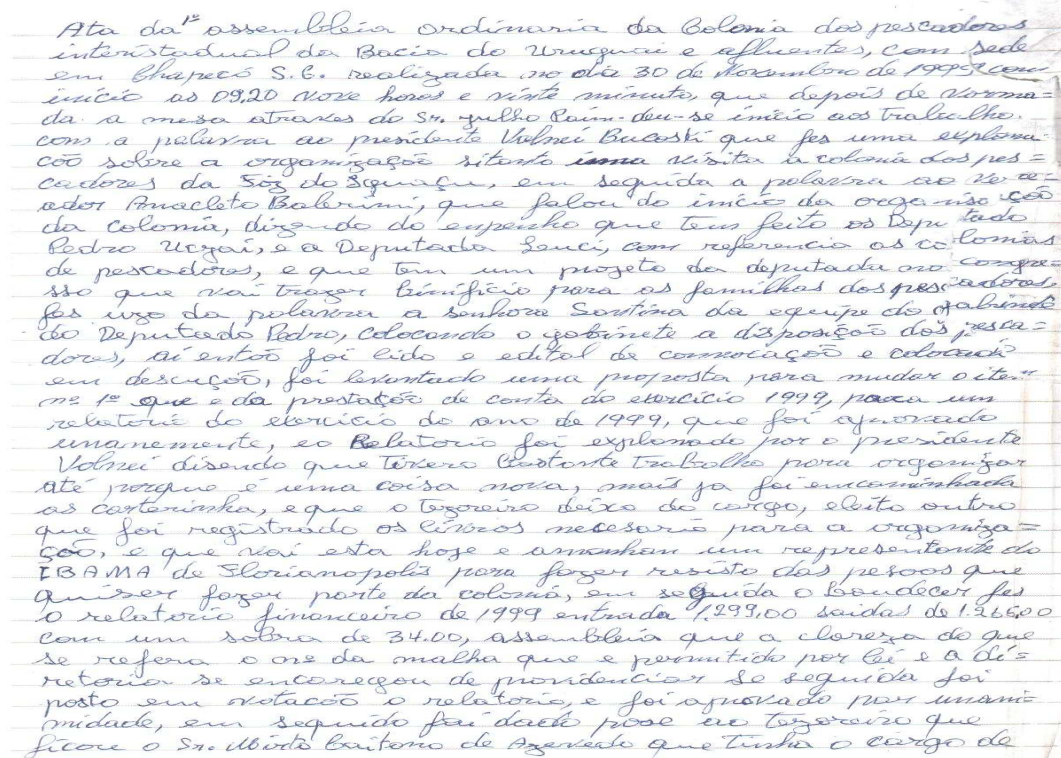 Ata da 1ª assembleia ordinaria da Colonia dos pescadores
interistadual da Bacia do Uruguai e afluentes, com sede
em Chapecó S.C. realizada no dia 30 de Novembro de 1999, com
início as 09,20 nove horas e vinte minuto, que depois de vorma=
da a mesa atraves do Sr. Julho Paim deu-se início aos trabalho.
com a palavra ao presidente Volnei Bucoski que fes uma explana
cõo sobre a organização sitanto uma visita a colonia dos pes=
cadores da Foz do Iguaçu, em seguida a palavra ao vere=
ador Anacleto que falou do inicio da organisação
da colonia, dizendo do enpenho que tem feito os Deputado
Pedro Uczai, e a Deputada Luci, com referencia as colonias
de pescadores, e que tem um projeto da deputada no congre=
sso que vai trazer binificio para as familhas dos pescadores,
fes uzo da palavra a senhora Santina da equipe do gabinete
do Deputado Pedro, colocando o gabinete a disposição dos pesca=
dores, ai então foi lido e edital de convocação e colocado
em descução, foi levantado uma proposta para mudar o item
nº 1º que e da prestação de conta do exercício 1999, para um
relatorio do exercicio do ano de 1999, que foi aprovado
unanemente, eo Relatorio foi explanado por o presidente
Volnei disendo que tivero bastante trabalho para organizar
até porque é uma coisa nova, mais ja foi encaminhada
as carterinha, e que o tezoreiro deixo do cargo, eleito outro
que foi registrado os livros necesario para a organiza=
ção, e que vai esta hoje e amanhan um representante do
IBAMA de Florianopolis para fazer resisto das pesoas que
quiser fazer parte da colonia, em seguida o fes
o relatorio financeiro de 1999 entrada 1.299,00 saidas de 1.265,00
com um sobra de 34.00, assembleia que a clareza do que
se refera o nº da malha que e permitido por lei e a di=
retoria se encaregou de providenciar Se seguida foi
posto em votacão o relatorio, e foi aprovado por unani=
midade, em seguido foi dado pose ao tezoreiro que
ficou o Sr. Mirto Caitano de Azevedo que tinha o cargo de